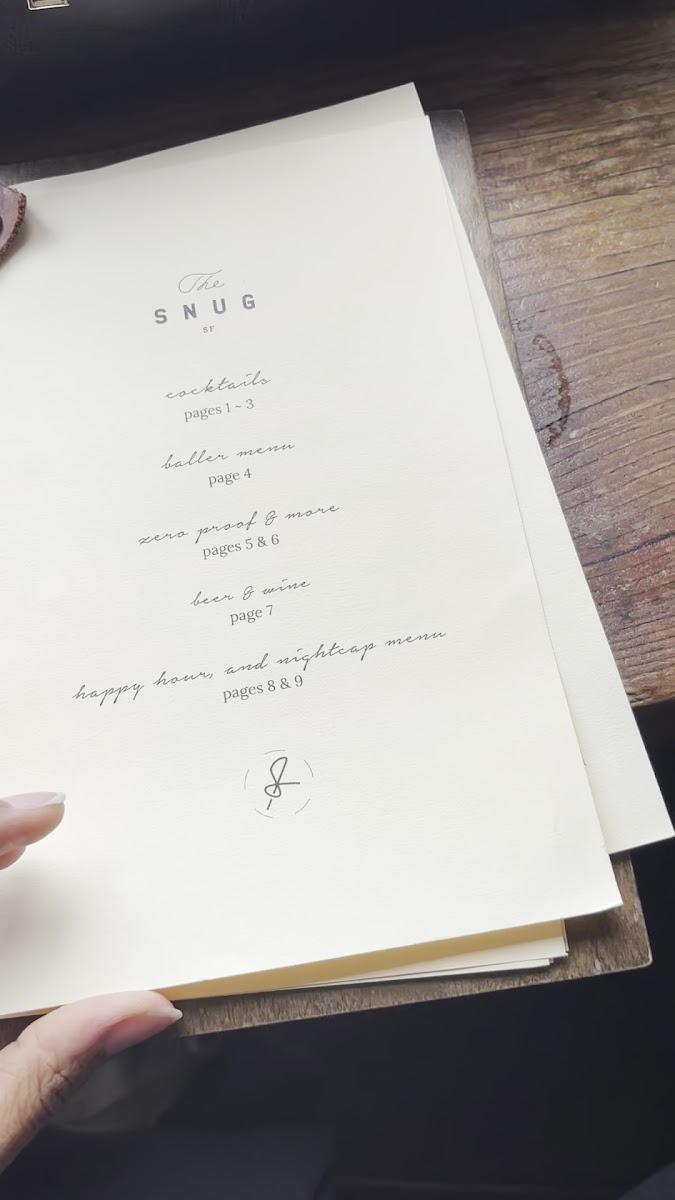 The
SNUG
SF
cocktails
pages 1 ~ 3
baller menu
page 4
zero proof & more
pages 5 & 6
beer & wine
page 7
happy hour, and nightcap menu
pages 8 & 9